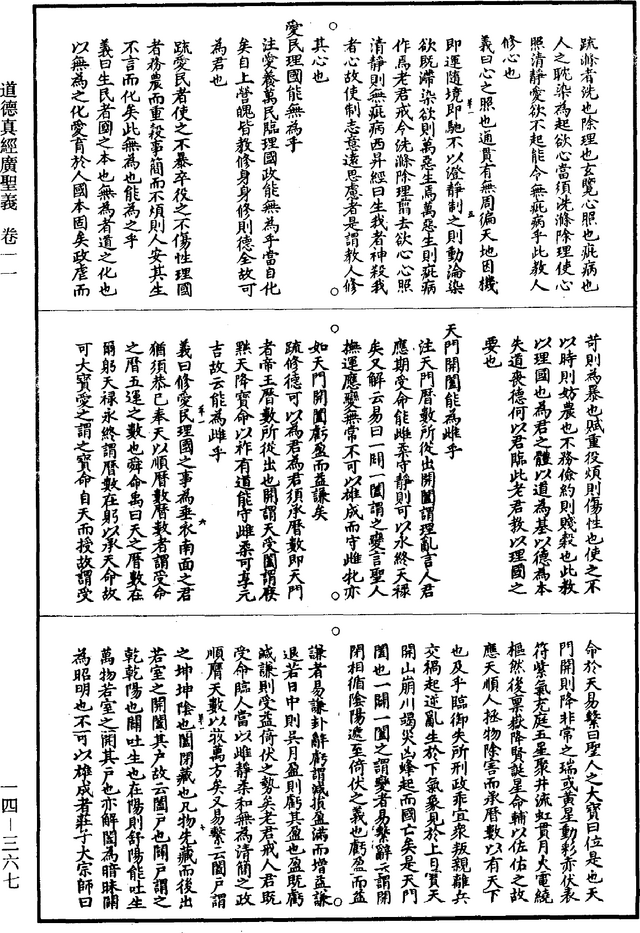 疏滌者洗也除理也玄覽心照也疵病也
人之耽染為起欲心當須洗滌除理使心
照清靜愛欲不起能令無疵病乎此教人
修心也
義曰心之照也通貫有無周徧天地因機
即運隨境即馳不以澄靜制之則動淪染
欲既滯染欲則萬惡生焉萬惡生則疵病
作焉老君戒令洗滌除理翦去欲心心照
清靜則無疵病西昇經曰生我者神殺我
者心故使制志意遠思慮者是謂教人修
其心也
愛民理國能無為乎
注愛養萬民臨理國政能無為乎當自化
矣自上營魄皆教修身身修則德全故可
為君也
疏愛民者使之不暴卒役之不傷性理國
者務農而重穀事簡而不煩則人安其生
不言而化矣此無為也能為之乎
義曰生民者國之本也無為者道之化也
以無為之化愛育於人國本固矣政虐而
苛則為暴也賦重役煩則傷性也使之不
以時則妨農也不務儉約則賤穀也此教
以理國也為君之體以道為基以德為本
失道喪德何以君臨此老君教以理國之
要也
天門開闔能為雌乎
注天門曆數所從出開闔謂理亂言人君
應期受命能雌柔守靜則可以永終天祿
矣又解云易曰一闔一闢謂之變言聖人
撫運應變無常不可以雄成而守雌牝亦
如天門開闔虧盈而益謙矣
疏修德可以為君為君須承曆數即天門
者帝王曆數所從出也開謂天受闔謂廢
黜天降寶命以祚有道能守雌柔可享元
吉故云能為雌乎
義曰修愛民理國之事為垂衣南面之君
猶須恭已奉天以順曆數曆數者謂受命
之曆五運之數也舜命禹曰天之曆數在
爾躬天祿永終謂曆數在躬以承天命故
可大寶愛之謂之寶命自天而授故謂受
命於天易繫曰聖人之大寶曰位是也天
門開則降非常之瑞或黃星動彩赤伏表
符紫氣充庭五星聚井流虹貫月大電繞
樞然後稟嶽降賢誕星命輔以佐佑之故
應天順人拯物除害而承曆數以有天下
也及乎臨御失所刑政乖宜衆叛親離兵
交禍起逆亂生於下氣象見於上日實天
開山崩川竭災凶蜂起而國亡矣是天門
闔也一開一闔之謂變者易繫辭云謂開
閉相循陰陽遞至倚伏之義也虧盈而益
謙者易謙卦辭虧謂減損盈滿而增益謙
退若日中則昃月盈則虧其盈也盈既虧
減謙則受益倚伏之勢矣老君戒人君既
受命臨人當以雌靜柔和無為清簡之政
順膺天數以牧萬方矣又易繫云闔戶謂
之坤坤陰也闔閉藏也凡物先藏而後出
若室之開闔其戶故云闔戶也闢戶謂之
乾乾陽也闢吐生也在陽則舒陽能吐生
萬物若室之開其戶也亦解闔為暗昧闢
為昭明也不可以雄成者莊子大宗師曰
道德真經廣聖義　卷一一
一四—三六七